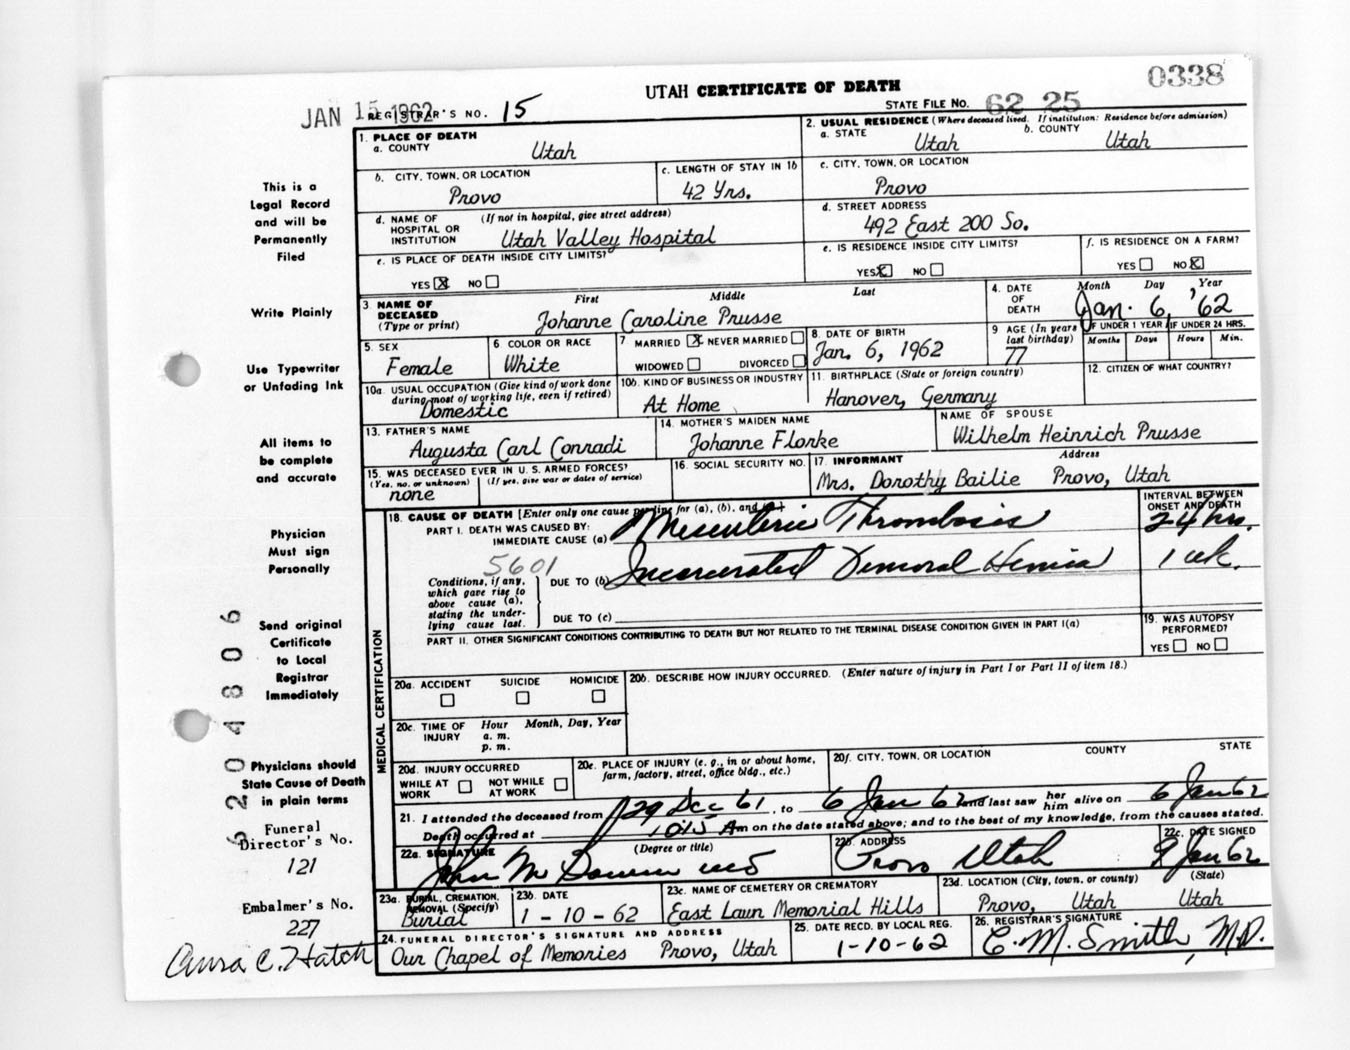 UTAH CERTIFICATE OF DEATH
0338
JAN 15 1962
REGISTRAR'S NO. 15
STATE FILE NO. 62 25
1. PLACE OF DEATH
a. COUNTY Utah
2. USUAL RESIDENCE (Where deceased lived. If institution: Residence before admission)
a. STATE Utah b. COUNTY Utah
b. CITY, TOWN, OR LOCATION Provo
c. LENGTH OF STAY IN 1b 42 Yrs.
c. CITY, TOWN, OR LOCATION Provo
d. NAME OF HOSPITAL OR INSTITUTION (If not in hospital, give street address) Utah Valley Hospital
d. STREET ADDRESS 492 East 200 So.
e. IS PLACE OF DEATH INSIDE CITY LIMITS? YES X NO
e. IS RESIDENCE INSIDE CITY LIMITS? YES X NO
f. IS RESIDENCE ON A FARM? YES NO X
3. NAME OF DECEASED (Type or print) First Middle Last
Johanne Caroline Prusse
4. DATE OF DEATH Month Day Year
Jan. 6, '62
5. SEX Female
6. COLOR OR RACE White
7 MARRIED X NEVER MARRIED WIDOWED DIVORCED
8. DATE OF BIRTH Jan. 6, 1962
9 AGE (In years last birthday) 77
IF UNDER 1 YEAR Months Days
IF UNDER 24 HRS. Hours Min.
10a. USUAL OCCUPATION (Give kind of work done during most of working life, even if retired) Domestic
10b. KIND OF BUSINESS OR INDUSTRY At Home
11. BIRTHPLACE (State or foreign country) Hanover, Germany
12. CITIZEN OF WHAT COUNTRY?
13. FATHER'S NAME Augusta Carl Conradi
14. MOTHER'S MAIDEN NAME Johanne Florke
NAME OF SPOUSE Wilhelm Heinrich Prusse
15. WAS DECEASED EVER IN U. S. ARMED FORCES? (Yes, no, or unknown) (If yes, give war or dates of service) none
16. SOCIAL SECURITY NO.
17. INFORMANT Address
Mrs. Dorothy Bailie Provo, Utah
18. CAUSE OF DEATH [Enter only one cause per line for (a), (b), and (c)]
INTERVAL BETWEEN ONSET AND DEATH
PART I. DEATH WAS CAUSED BY:
IMMEDIATE CAUSE (a) Mesenteric Thrombosis 24 hrs.
5601
Conditions, if any, which gave rise to above cause (a), stating the underlying cause last.
DUE TO (b) Incarcerated Femoral Hernia 1 wk.
DUE TO (c)
PART II. OTHER SIGNIFICANT CONDITIONS CONTRIBUTING TO DEATH BUT NOT RELATED TO THE TERMINAL DISEASE CONDITION GIVEN IN PART I(a)
19. WAS AUTOPSY PERFORMED? YES NO
MEDICAL CERTIFICATION
20a. ACCIDENT SUICIDE HOMICIDE
20b. DESCRIBE HOW INJURY OCCURRED. (Enter nature of injury in Part I or Part II of item 18.)
20c. TIME OF INJURY Hour a. m. p. m. Month, Day, Year
20d. INJURY OCCURRED WHILE AT WORK NOT WHILE AT WORK
20e. PLACE OF INJURY (e. g., in or about home, farm, factory, street, office bldg., etc.)
20f. CITY, TOWN, OR LOCATION COUNTY STATE
21. I attended the deceased from 29 Dec 61, to 6 Jan 62 and last saw her him alive on 6 Jan 62
Death occurred at 1015 Am on the date stated above; and to the best of my knowledge, from the causes stated.
22a. SIGNATURE (Degree or title) John M
22b. ADDRESS Provo Utah
22c. DATE SIGNED 9 Jan 62
23a. BURIAL, CREMATION, REMOVAL (Specify) Burial
23b. DATE 1-10-62
23c. NAME OF CEMETERY OR CREMATORY East Lawn Memorial Hills
23d. LOCATION (City, town, or county) (State)
Provo, Utah Utah
24. FUNERAL DIRECTOR'S SIGNATURE AND ADDRESS
Our Chapel of Memories Provo, Utah
25. DATE RECD. BY LOCAL REG. 1-10-62
26. REGISTRAR'S SIGNATURE E. M. Smith, M.D.
This is a
Legal Record
and will be
Permanently
Filed
Write Plainly
Use Typewriter
or Unfading Ink
All items to
be complete
and accurate
Physician
Must sign
Personally
Send original
Certificate
to Local
Registrar
Immediately
Physicians should
State Cause of Death
in plain terms
Funeral
Director's No.
121
Embalmer's No.
227
C. Hatch